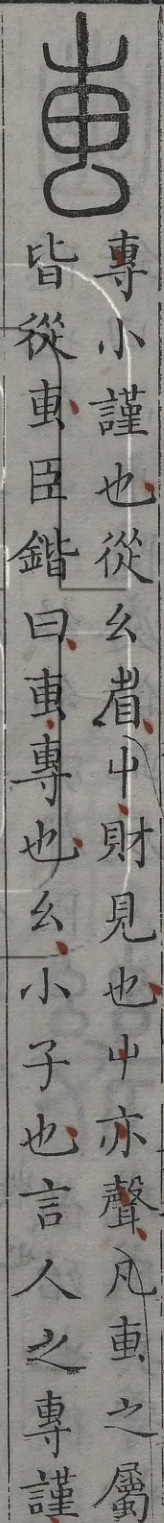 專小謹也從幺省屮財見也屮亦聲凡叀之屬
皆從叀臣鍇曰叀專也幺小子也言人之專謹